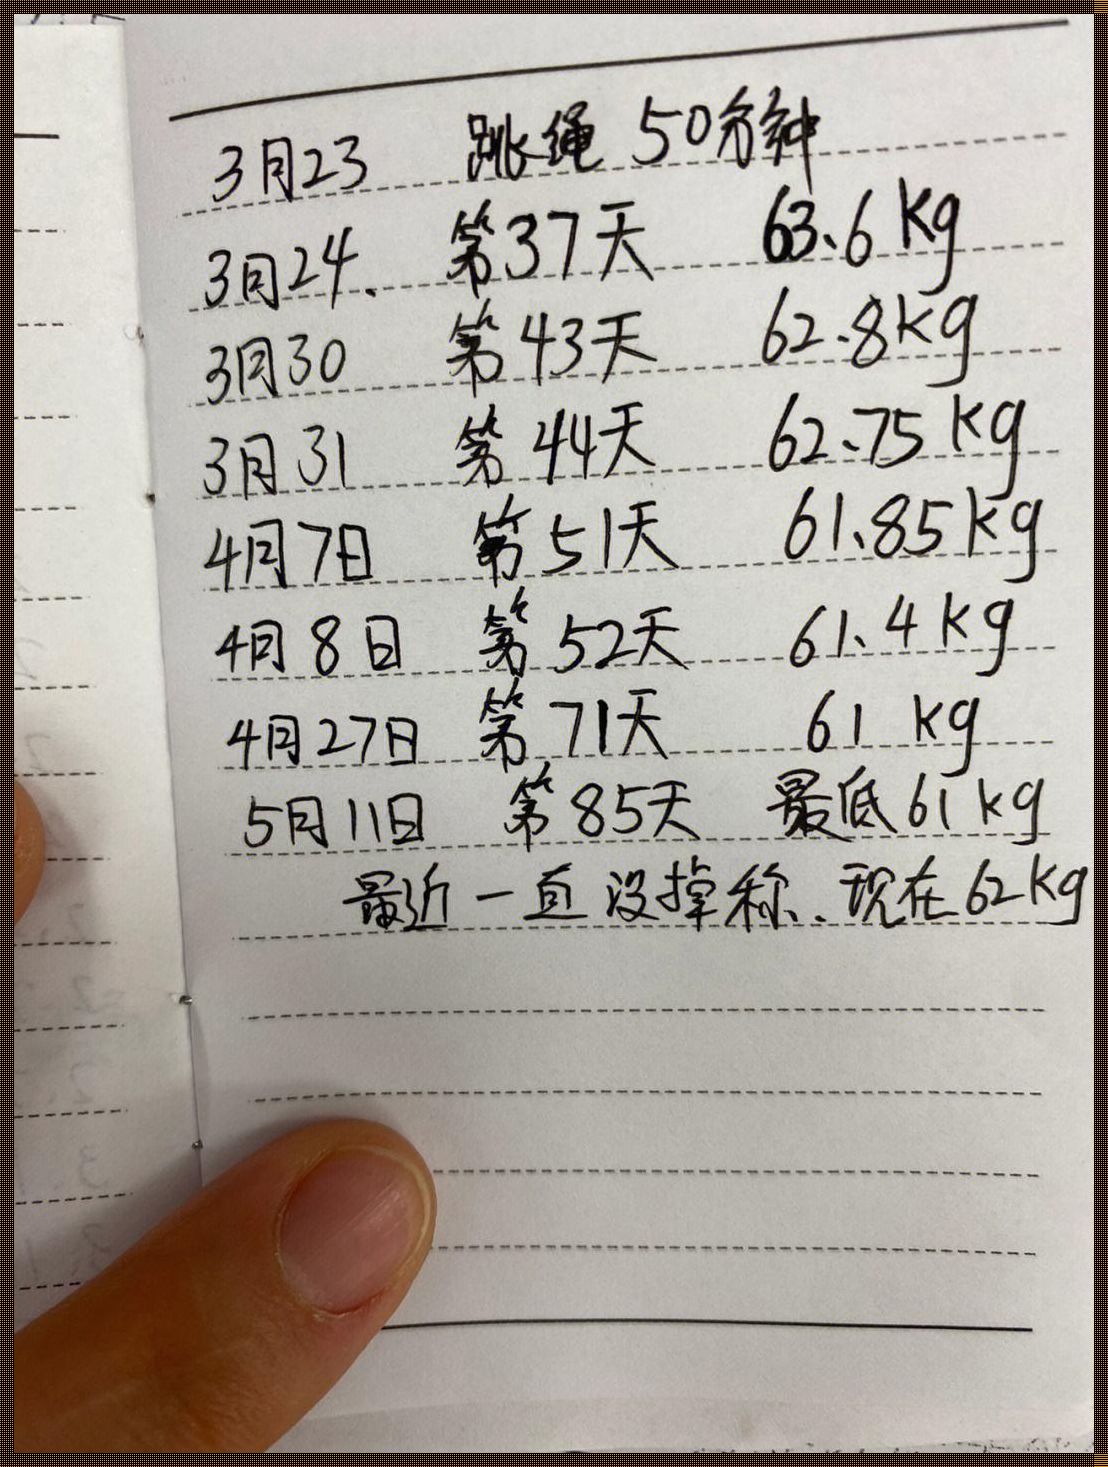 3月23 跳绳 50分钟
3月24. 第37天 63.6kg
3月30 第43天 62.8kg
3月31 第44天 62.75kg
4月7日 第51天 61.85kg
4月8日 第52天 61.4kg
4月27日 第71天 61 kg
5月11日 第85天 最低61kg
最近一直没掉称、现在62kg